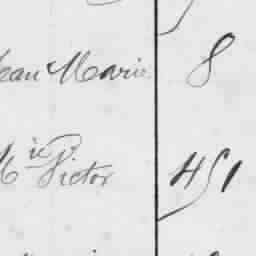 Jean Marie 8
Mie Victor 451